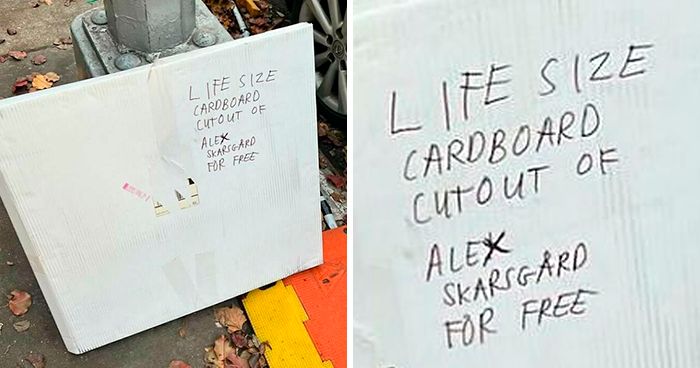 LIFE SIZE
CARDBOARD
CUTOUT OF
ALEX
SKARSGARD
FOR FREE
LIFE SIZE
CARDBOARD
CUTOUT OF
ALEX
SKARSGARD
FOR FREE